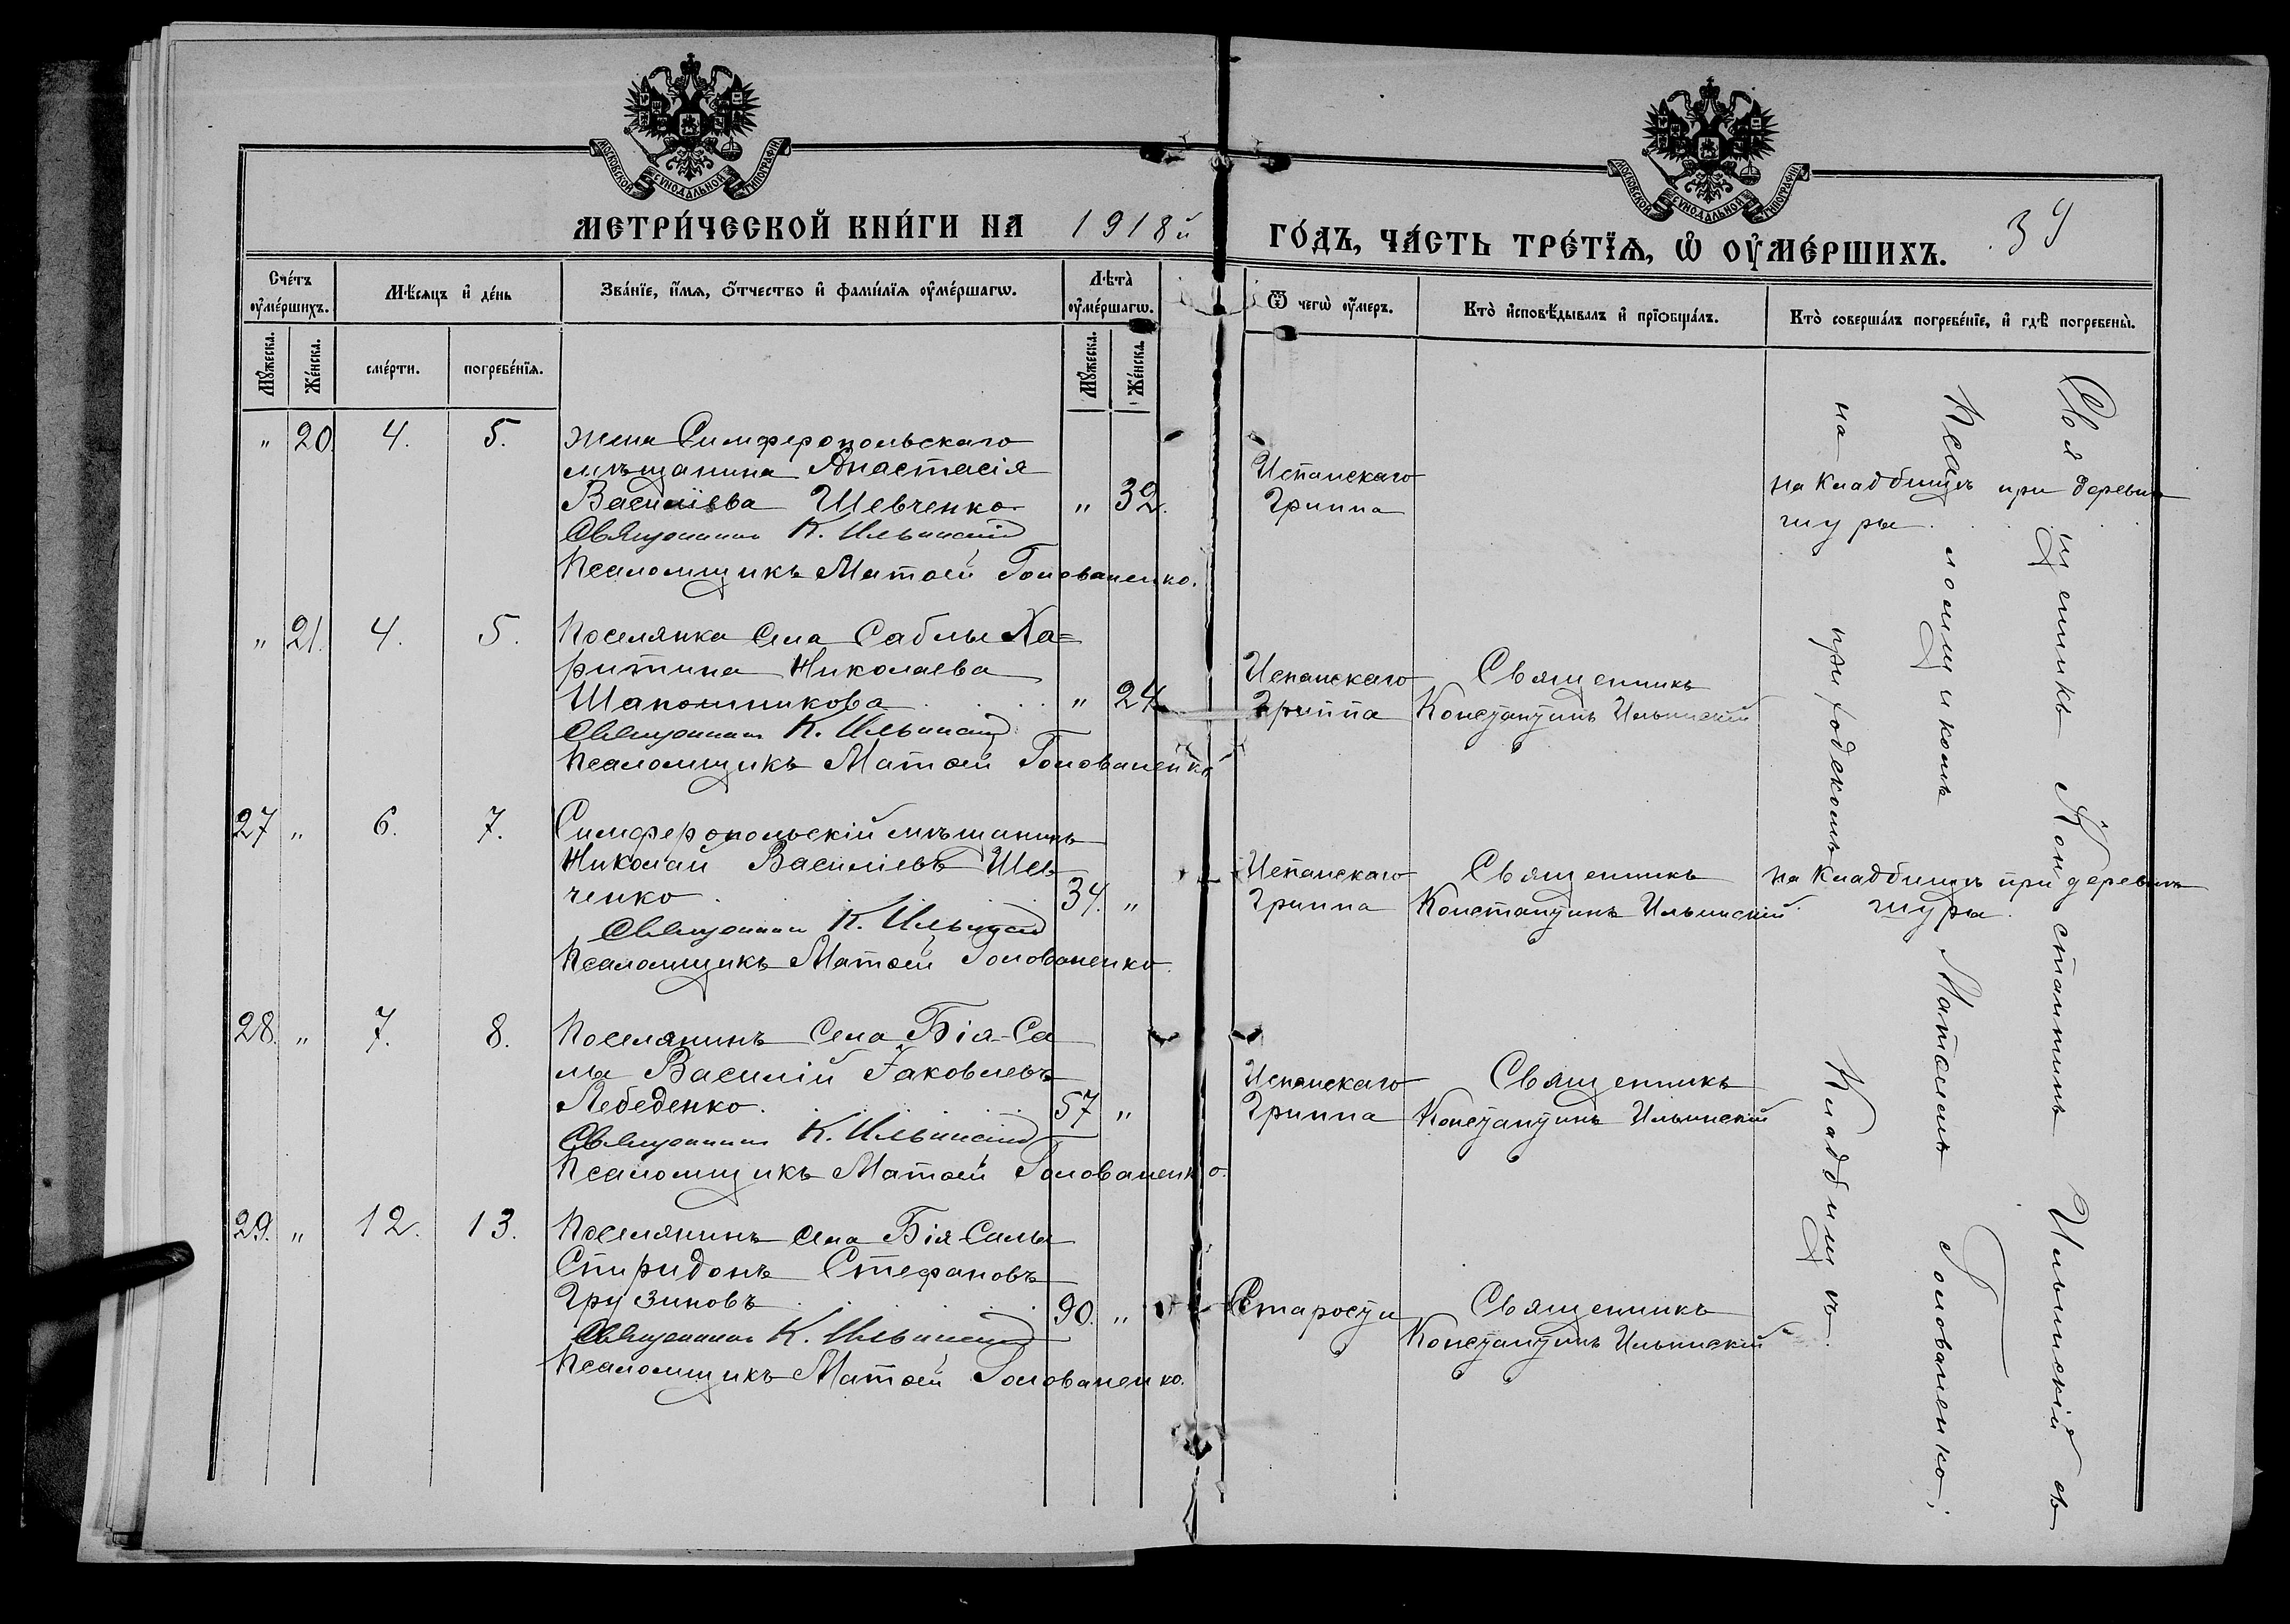 МОСКОВСКОЙ СѴНОДАЛЬНОЙ ТИПОГРАФІИ
МОСКОВСКОЙ СѴНОДАЛЬНОЙ ТИПОГРАФІИ
МЕТРИ́ЧЕСКОЙ КНИ́ГИ НА 1918й
ГО́ДЪ, ЧА́СТЬ ТРЕ́ТЇѦ, Ѡ҆ ОУ҆МЕ́РШИХЪ.
Сче́тъ оу҆ме́ршихъ.
Мѣ́сѧцъ и҆ де́нь
Зва́нїе, и҆́мѧ, ѻ҆́тчество и҆ фами́лїѧ оу҆ме́ршагѡ.
Лѣ́та оу҆ме́ршагѡ.
Ѿ чегѡ̀ оу҆́меръ.
Кто̀ и҆сповѣ́дывалъ и҆ прїѻбща́лъ.
Кто̀ соверша́лъ погребе́нїе, и҆ гдѣ̀ погребены̀.
Мꙋ́жеска.
Же́нска.
сме́рти.
погребе́нїѧ.
Мꙋ́жеска.
Же́нска.
" 20. 4. 5. Жена Симферопольскаго
мѣщанина Анастасія
Василіева Шевченко " 32.
Священникъ К. Ильинскій
Псаломщикъ Матѳей Голованенко.
Испанскаго
Гриппа
на кладбищѣ при деревнѣ
шуры.
" 21. 4. 5. Поселянка села Саблы Ха=
ритина Николаева
Шапошникова " 24.
Священникъ К. Ильинскій
Псаломщикъ Матѳей Голованенко
Испанскаго
Гриппа
Священникъ
Константинъ Ильинскій
27 " 6. 7. Симферопольскій мѣщанинъ
Николай Василіевъ Шев
ченко 34. "
Священникъ К. Ильинскій
Псаломщикъ Матѳей Голованенко.
Испанскаго
Гриппа
Священникъ
Константинъ Ильинскій
на кладбищѣ при деревнѣ
шуры.
28. " 7. 8. Поселянинъ села Бія-Са
лы Василій Іаковлевъ
Лебеденко. 57 "
Священникъ К. Ильинскій
Псаломщикъ Матѳей Голованенко.
Испанскаго
Гриппа
Священникъ
Константинъ Ильинскій
29. " 12. 13. Поселянинъ села Бія-Салы
Спиридонъ Стефановъ
Грузиновъ 90. "
Священникъ К. Ильинскій
Псаломщикъ Матѳей Голованенко.
Старости
Священникъ
Константинъ Ильинскій
Священникъ Константинъ Ильинскій съ
Псаломщикомъ Матѳеемъ Голованенко,
на приходскомъ кладбищѣ.